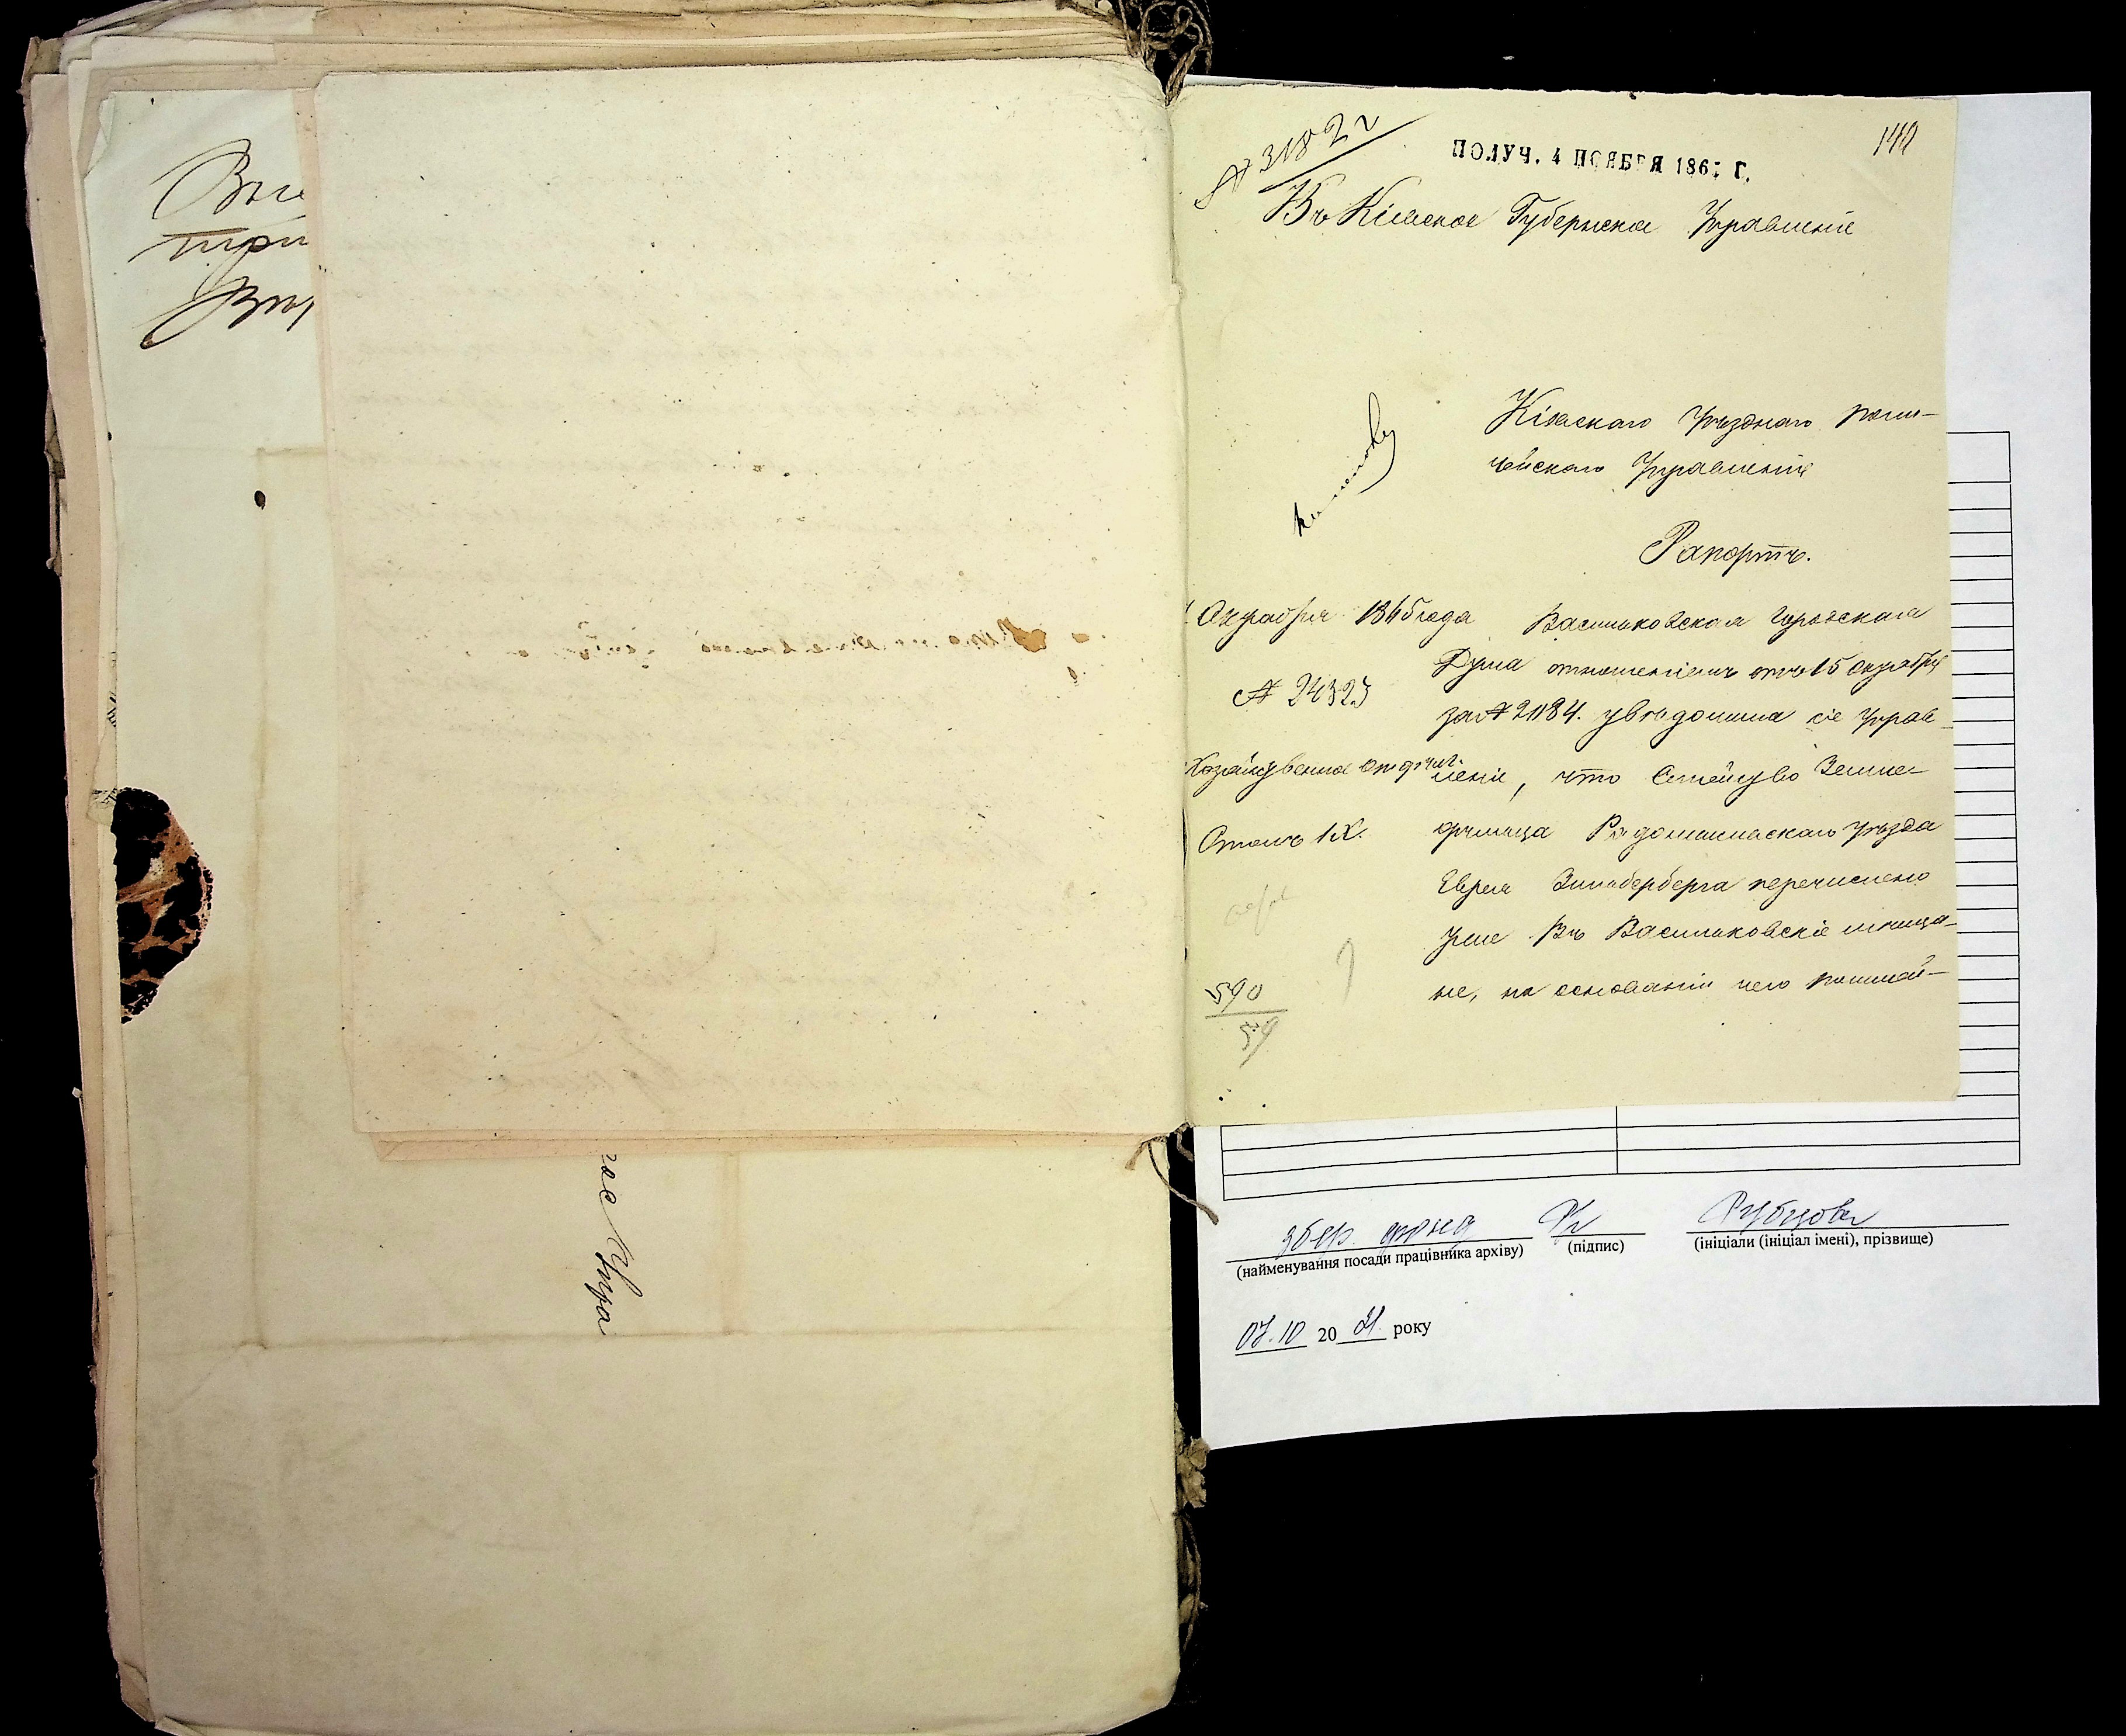 № 3182
ПОЛУЧ. 4 НОЯБРЯ 186 Г.
Въ Кіевское Губернское Управленіе
Кіевскаго Уѣзднаго поли-
цейскаго Управленія
Рапортъ.
Октября 1865 года
№ 24323
Хозяйственное отдѣл.
Столъ IX.
590
59
Васильковская Городская
Дума отношеніемъ отъ 15 октября
за № 2084. увѣдомила сіе Управ-
леніе, что Семейство Земле-
дѣльца Радомысльскаго уѣзда
Еврея Зильберберга перечислено
уже въ Васильковскіе мѣща-
не, на основаніи чего полицей-
Вы
три
ое Упра
збер. фонд
Рубцова
(найменування посади працівника архіву)
(підпис)
(ініціали (ініціал імені), прізвище)
07.10 20 21 року